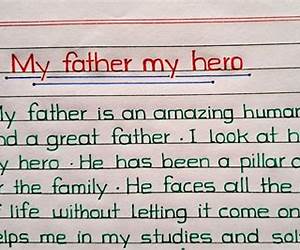 My father my hero
My father is an amazing human
and a great father . I look at h
my hero . He has been a pillar o
r the family . He faces all the
f life without letting it come on
elps me in my studies and sol